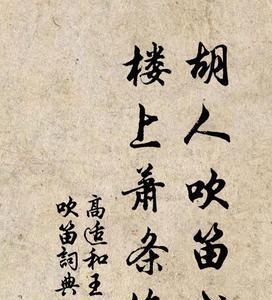 胡人吹笛
楼上萧条
高适和王
吹笛詞典